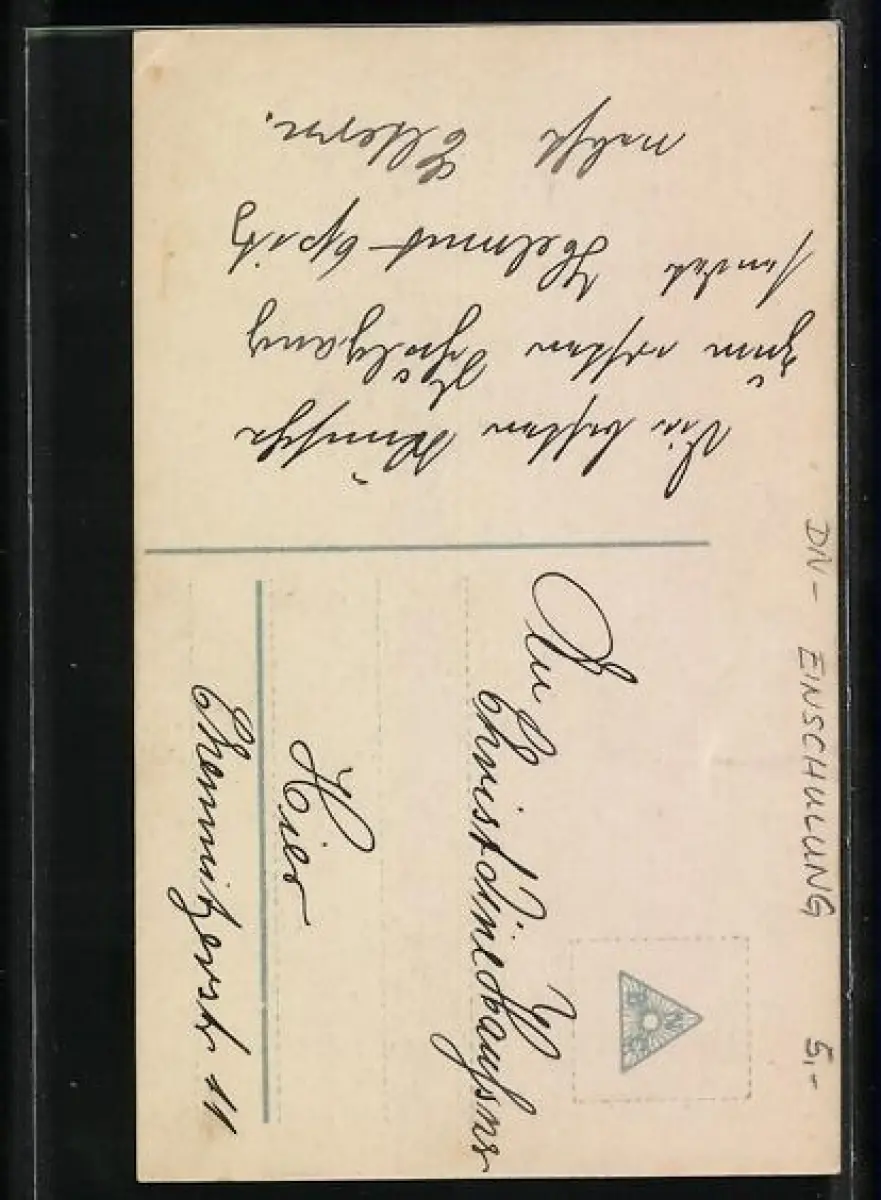 Die besten Wünsche
zum ersten Schulgang
sendet Helmut Opitz
nebst Eltern.
An
Christa
Hier
Chemnitzerstr. 11
DN- EINSCHULUNG 5,-